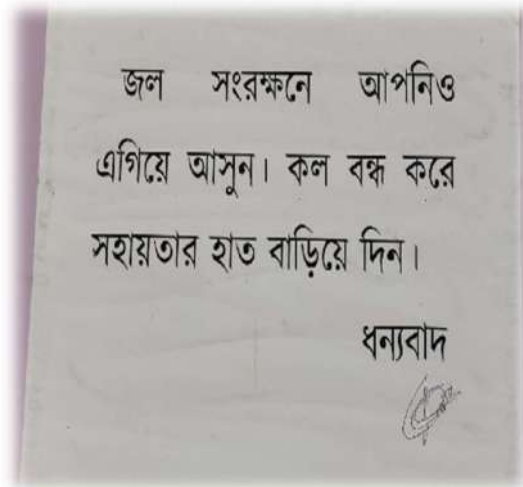 জল সংরক্ষনে আপনিও
এগিয়ে আসুন। কল বন্ধ করে
সহায়তার হাত বাড়িয়ে দিন।
ধন্যবাদ